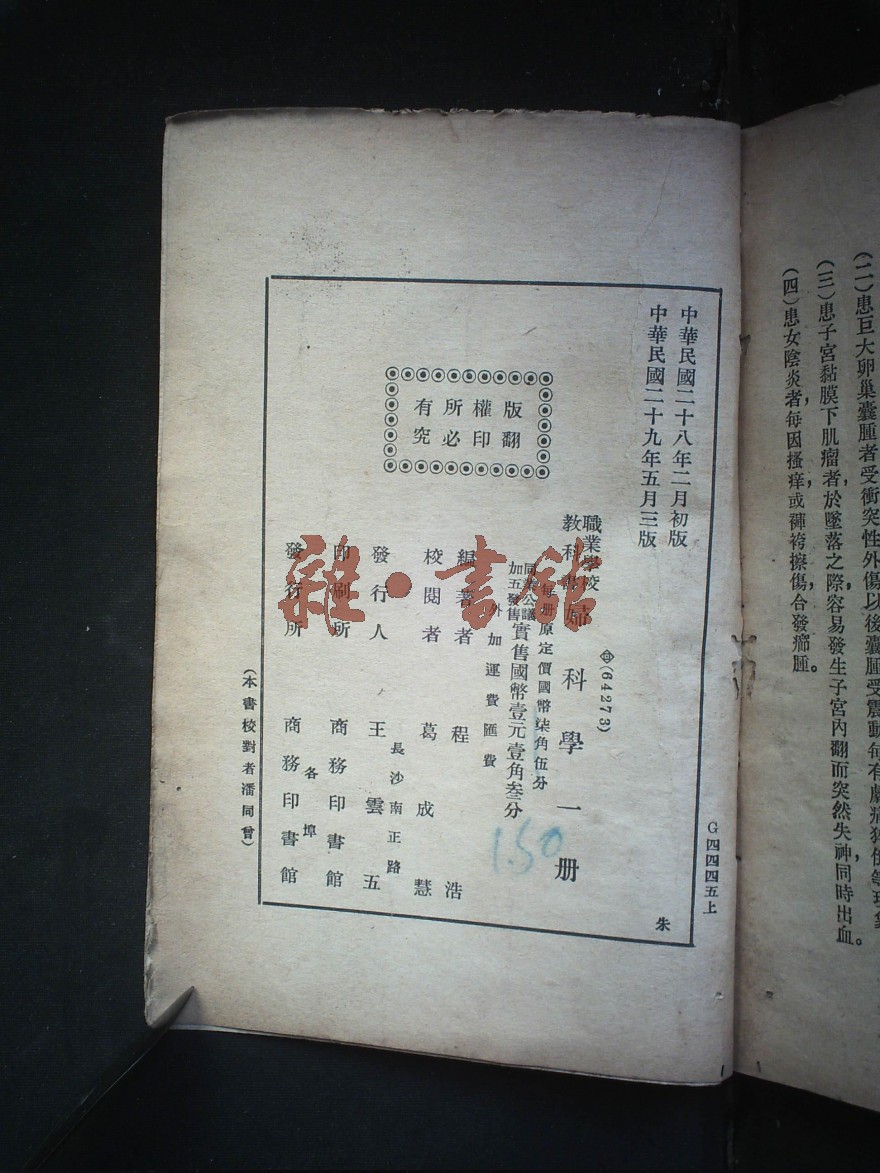 (二)患巨大卵巢囊腫者受衝突性外傷以後囊腫受震動
(三)患子宮黏膜下肌瘤者,於墜落之際,容易發生子宮內翻而突然失神,同時出血。
(四)患女陰炎者,每因搔痒或褲袴擦傷合發癤腫。
G四四四五上
中華民國二十八年二月初版
中華民國二十九年五月三版
版權所有
翻印必究
(64273)
職業學校
教科書
婦科學一册
每册原定價國幣柒角伍分
同業公議
加五發售
實售國幣壹元壹角叁分
外加運費匯費
1.50
編著者 程浩
校閱者 葛成慧
長沙南正路
發行人 王雲五
印刷所 商務印書館
各埠
發行所 商務印書館
(本書校對者潘同曾)
朱
雜·書館